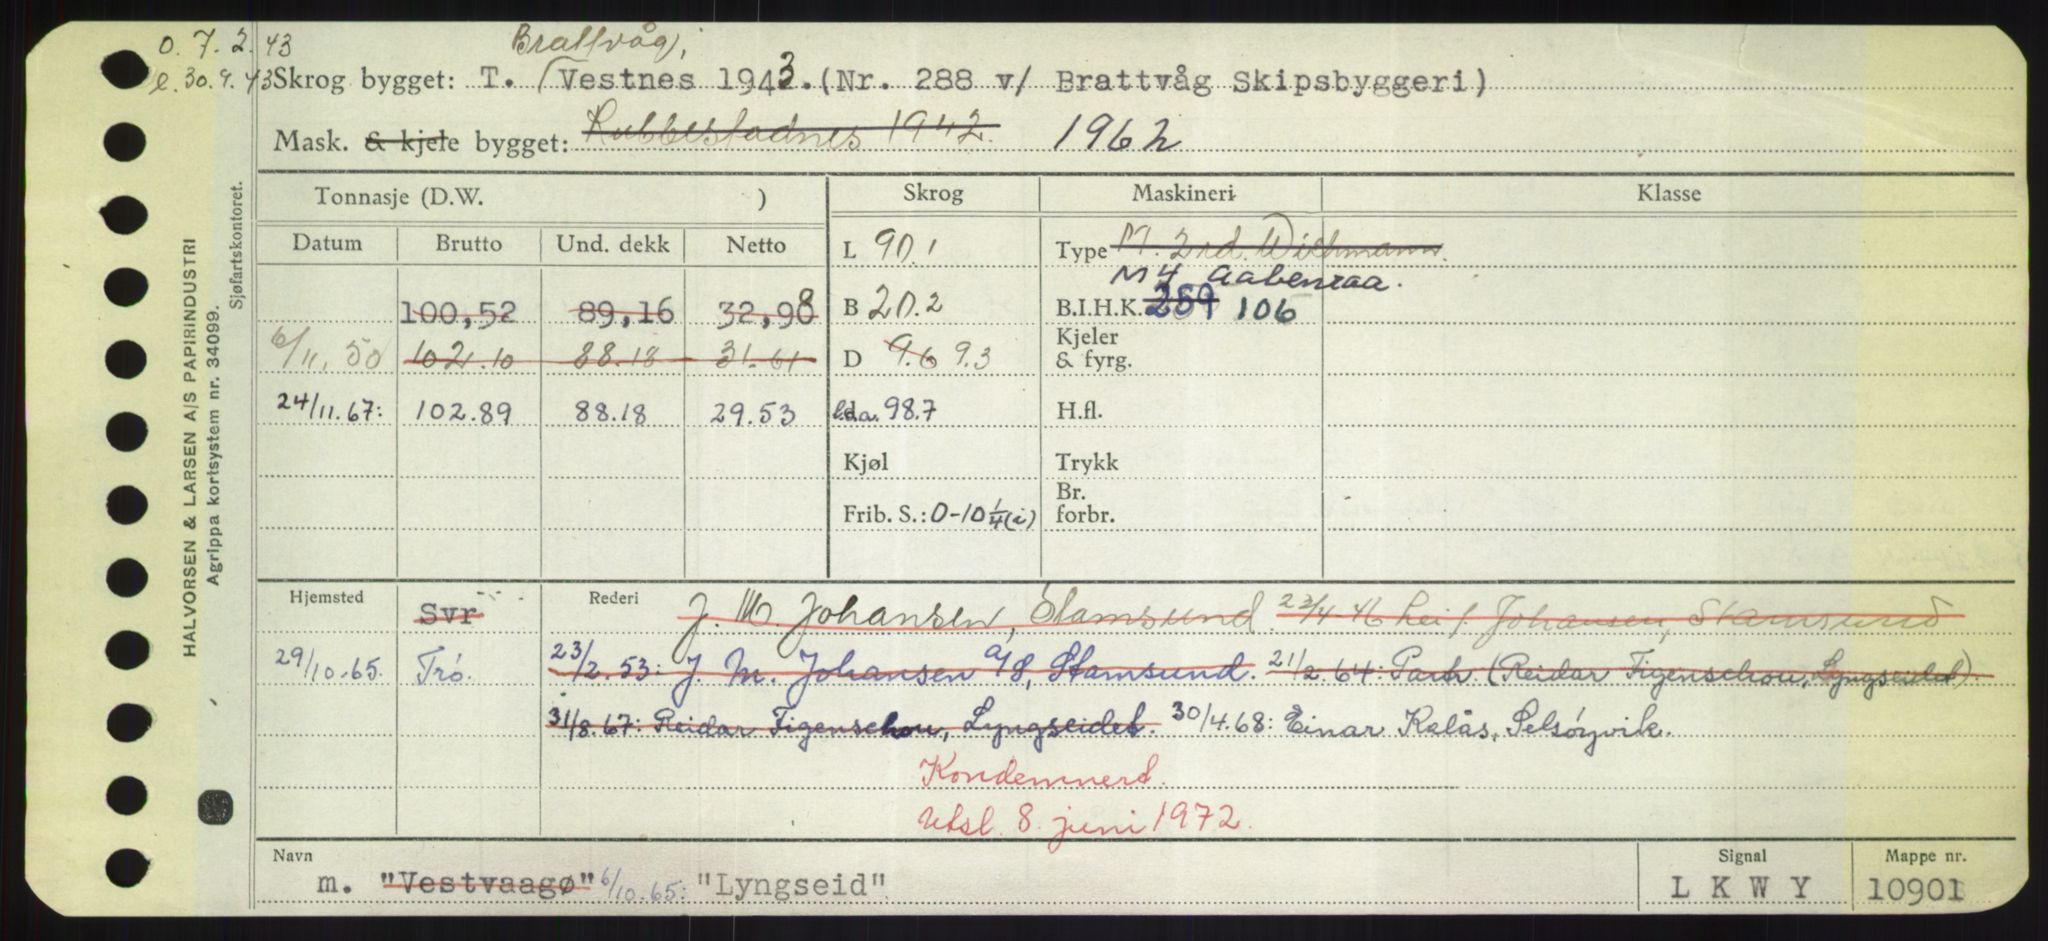 O. 7. 2. 43
Brattvåg,
l. 30.9.43 Skrog bygget: T. Vestnes 1943. (Nr. 288 v/ Brattvåg Skipsbyggeri)
Mask. & kjele bygget: Rubbestadnes 1942. 1962
Tonnasje (D.W. ) Skrog Maskineri Klasse
Datum Brutto Und. dekk Netto L 90.1 Type M. 2rd. Wichmann.
M 4 Aabenraa.
100,52 89,16 32,98 B 20.2 B.I.H.K. 259 106
6/11. 50 102.10 88.18 31.61 D 9.6 9.3 Kjeler & fyrg.
24/11.67: 102.89 88.18 29.53 l.d.a. 98.7 H.fl.
Kjøl Trykk
Frib. S.: 0-10 1/4 (i) Br. forbr.
Hjemsted Svr Rederi J. M. Johansen, Stamsund. 23/4-46 Leif Johansen, Stamsund
29/10.65. Trö. 23/2.53: J. M. Johansen A/S, Stamsund. 21/2 64: Partr. (Reidar Figenschou, Lyngseidet).
31/8.67: Reidar Figenschou, Lyngseidet. 30/4.68: Einar Kalås, Selsöyvik.
Kondemnert.
Utsl. 8. juni 1972.
Navn Signal Mappe nr.
m. "Vestvaagø" 6/10.65: "Lyngseid" L K W Y 10901
HALVORSEN & LARSEN A/S PAPIRINDUSTRI
Agrippa kortsystem nr. 34099.
Sjøfartskontoret.